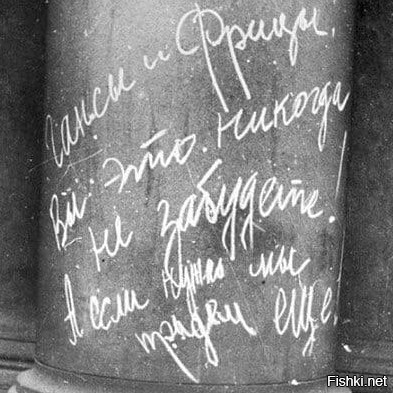 Гансы и Фрицы.
Вы это никогда
не забудете!
А если нужно мы
придем еще.
Fishki.net